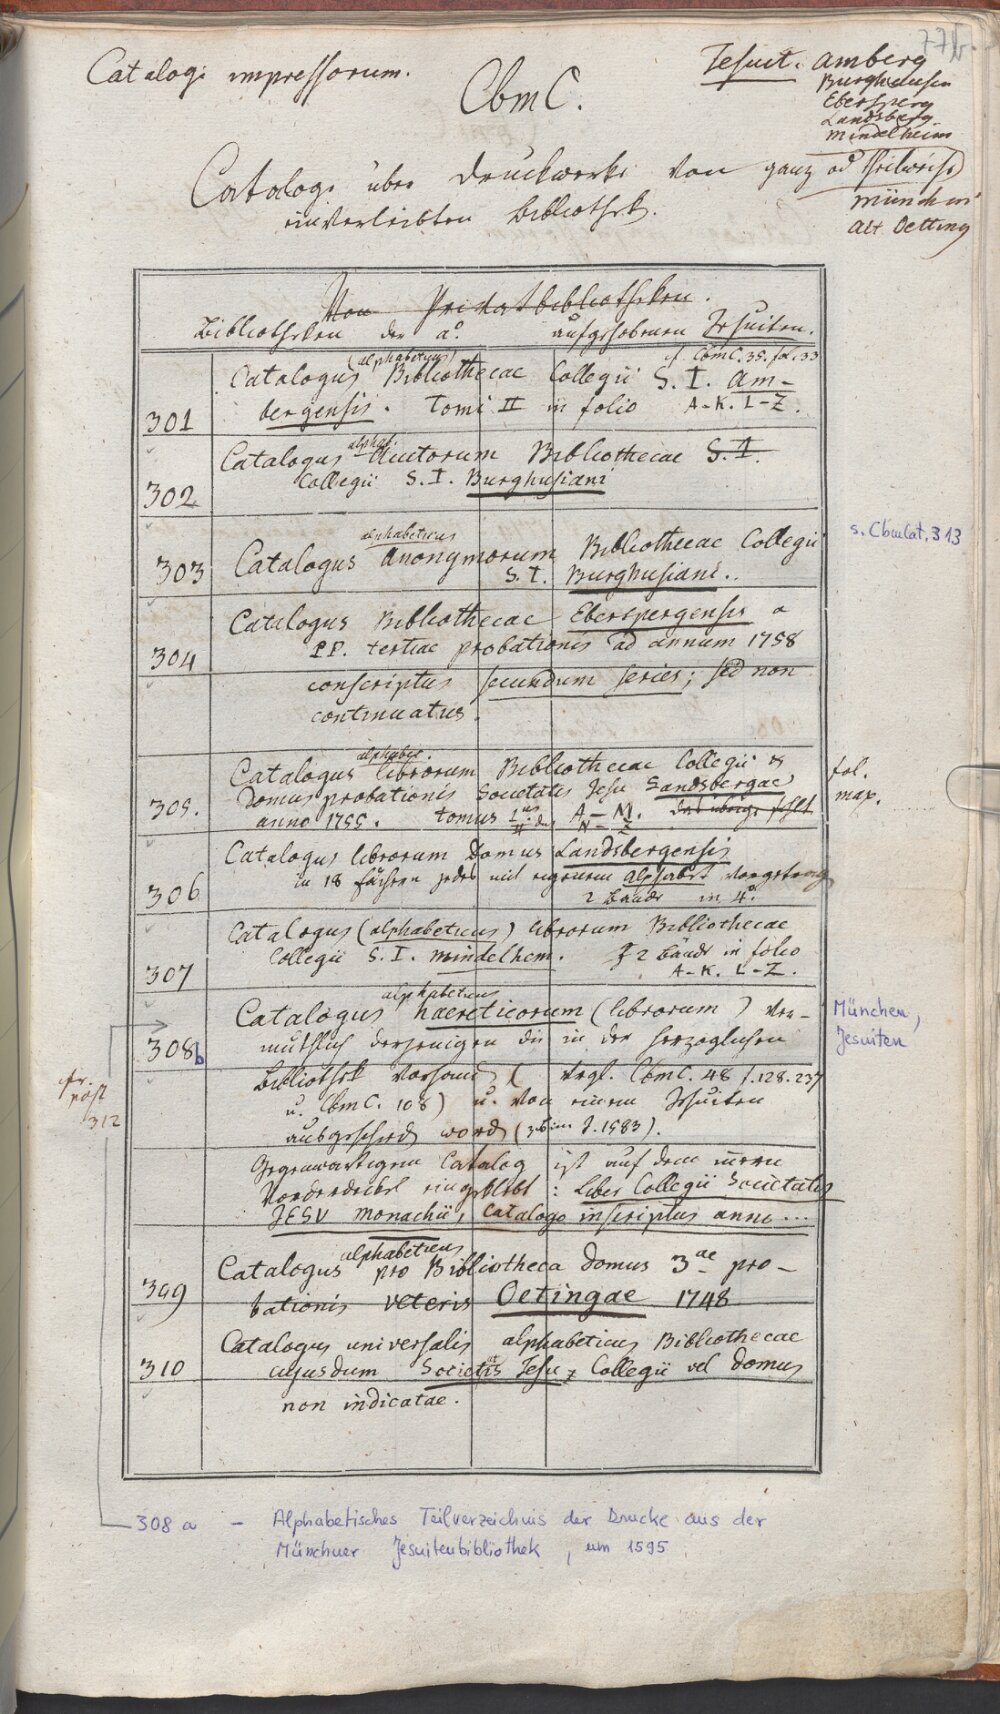 77r.
Catalogi impressorum.
CbmC.
Jesuit. Amberg
Burghausen
Ebersperg
Landsberg
Mindelheim
München
Alt Oetting
Catalogi über Druckwerke von ganz od theilweise
einverleibten Bibliothek.
Von Privatbibliotheken.
Bibliotheken der aº. aufgehobenen Jesuiten.
cf CbmC. 35. fol. 33
301 Catalogus (alphabeticus) Bibliothecae Collegii S. I. Am-
bergensis. Tomi II in folio A-K. L-Z.
302 Catalogus alphab. Autorum Bibliothecae S. I.
Collegii S. I. Burghusiani
303 Catalogus alphabeticus Anonymorum Bibliothecae Collegii
S. I. Burghusiani.
s. Cbm Cat. 313
304 Catalogus Bibliothecae Eberspergensis a
PP. tertiae probationis ad annum 1758
conscriptus secundum series; sed non
continuatus.
305. Catalogus alphabet. librorum Bibliothecae Collegii &
Domus probationis Societatis Jesu Landsbergae
anno 1755. tomus I. A-M. das übrige fehlt
II N-Z
fol.
max.
306 Catalogus librorum Domus Landsbergensis
in 18 Fächern jedes mit eigenem Alphabet vorgetragen
2 Bände in 4º.
307 Catalogus (alphabeticus) librorum Bibliothecae
Collegii S. I. Mindelhem. 2 Bände in folio
A-K. L-Z.
308b Catalogus alphabeticus haereticorum (librorum) ver-
muthlich derjenigen die in der herzoglichen
Bibliothek vorhand (Vergl. CbmC. 48 f. 128. 237
u. CbmC. 108) u. von einem Jesuiten
ausgeschied word ( J. 1583).
Gegenwärtigem Catalog ist auf dem innern
Vorderdeckel eingeklebt: Liber Collegii Societatis
JESV Monachii, Catalogo inscriptus anno ...
München,
Jesuiten
post
312
309 Catalogus alphabeticus pro Bibliotheca Domus 3ae pro-
bationis veteris Oetingae 1748
310 Catalogus universalis alphabeticus Bibliothecae
cujusdam Societatis Jesu, Collegii vel Domus
non indicatae.
308 a - Alphabetisches Teilverzeichnis der Drucke aus der
Münchner Jesuitenbibliothek, um 1595